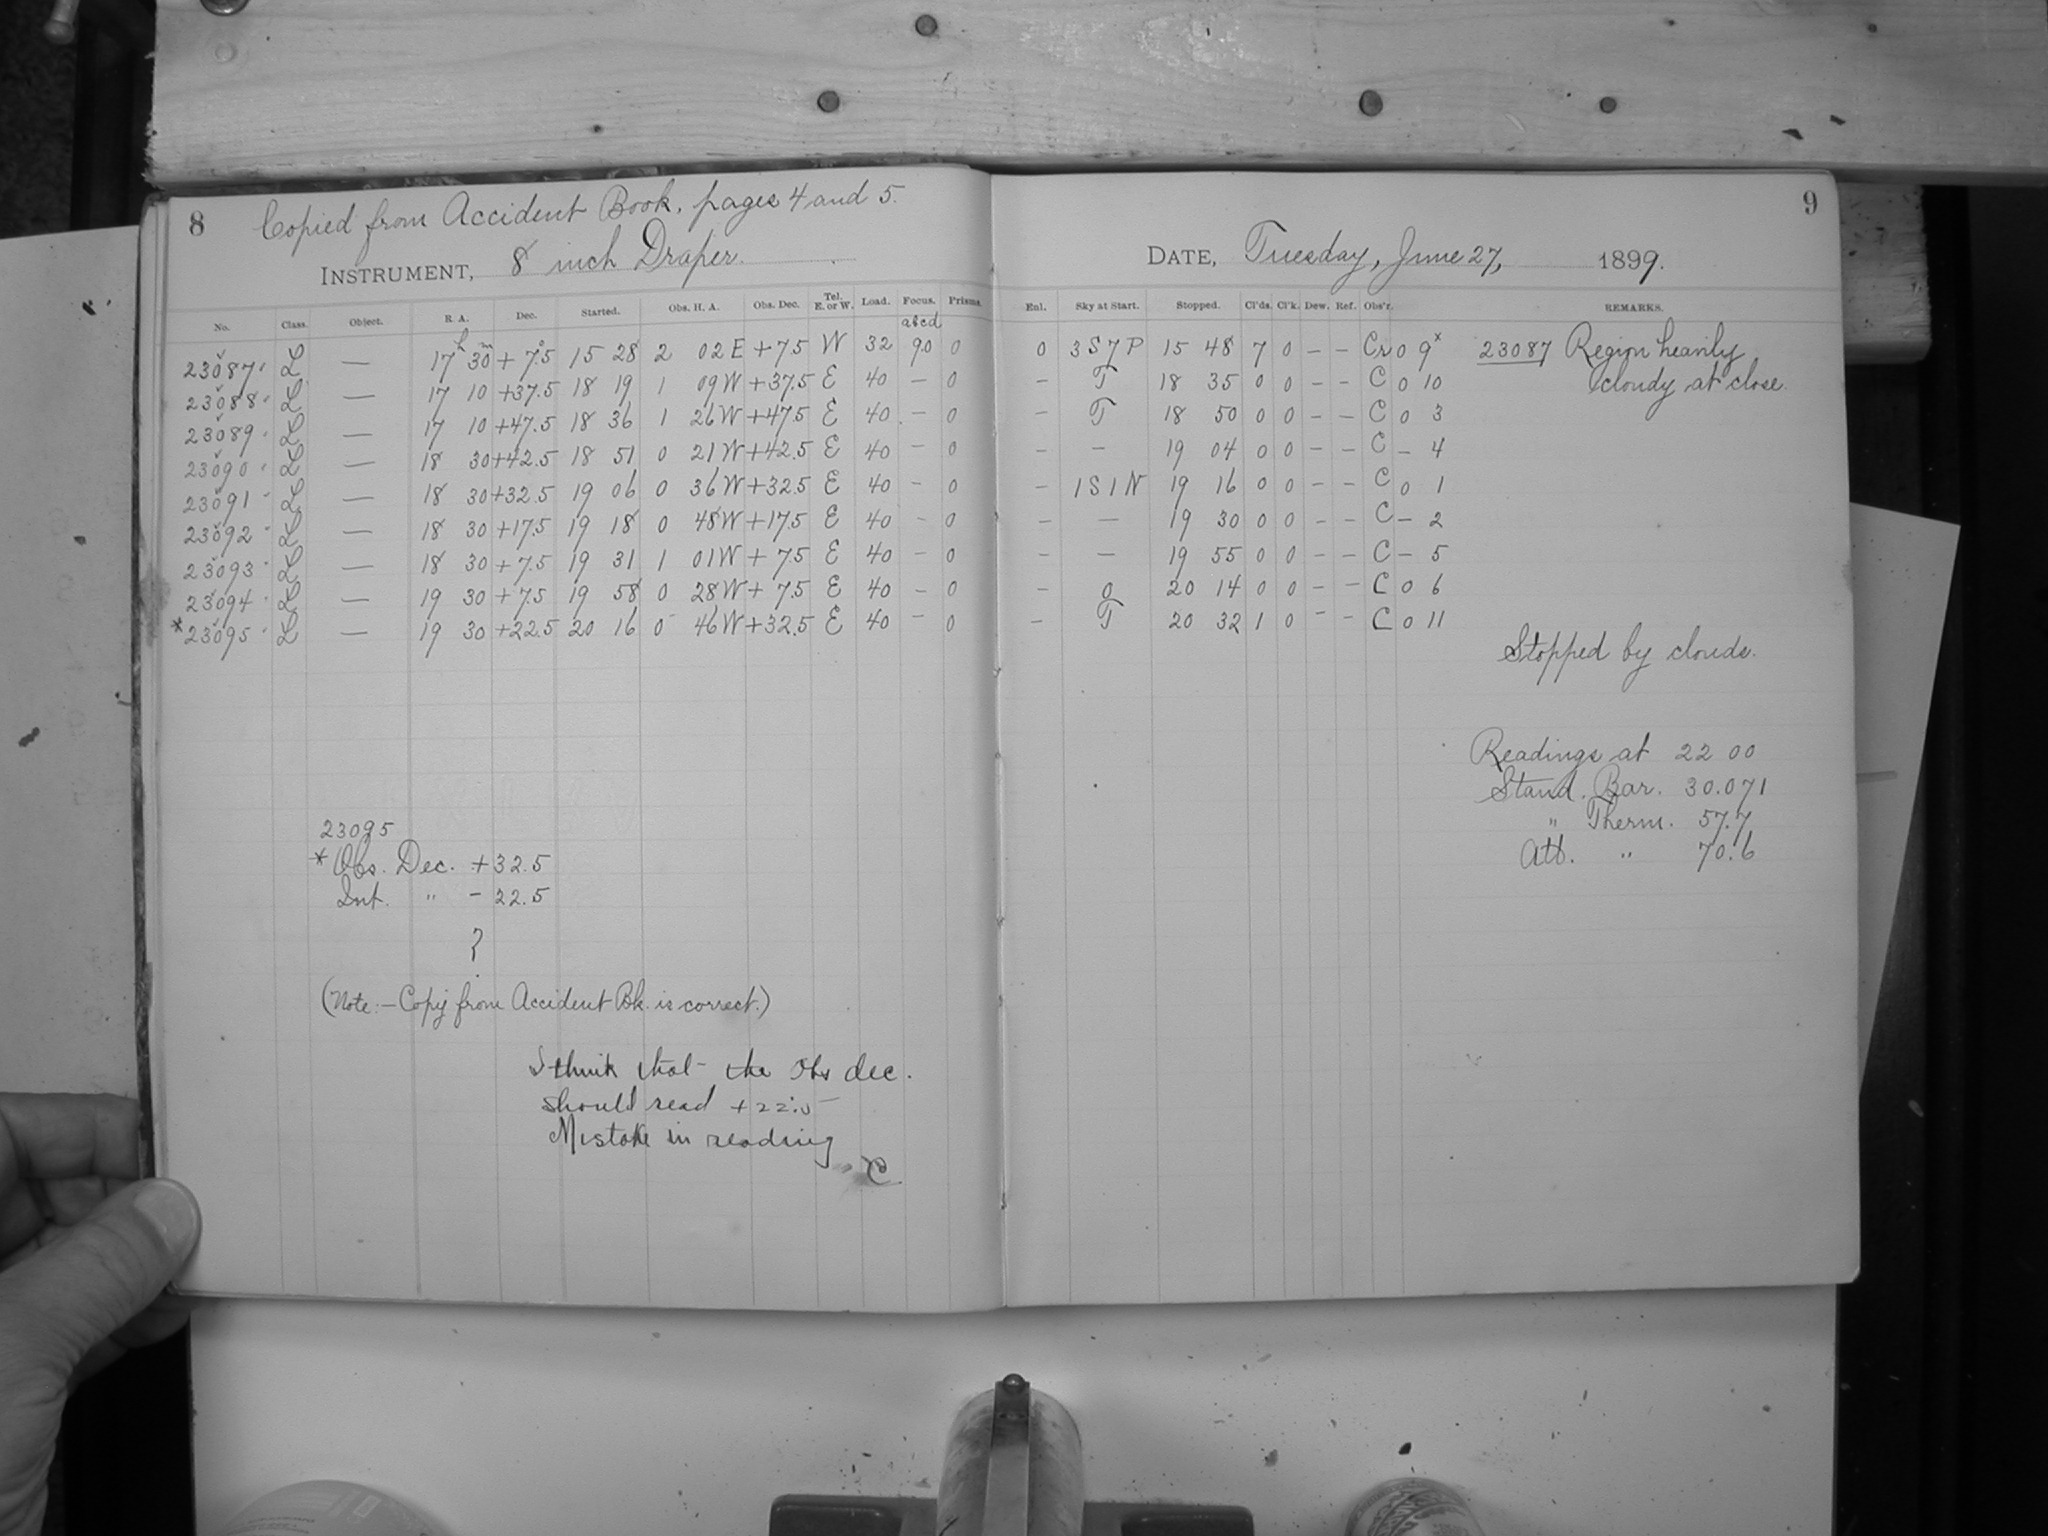 8 Copied from Accident Book, pages 4 and 5.
INSTRUMENT, 8 inch Draper.
No. Class. Object. R. A. Dec. Started. Obs. H. A. Obs. Dec. Tel. E. or W. Load. Focus. Prisms.
abcd
23087 L — 17h 30m + 7°.5 15 28 2 02 E + 7.5 W 32 90 0
23088 L — 17 10 +37.5 18 19 1 09 W +37.5 E 40 — 0
23089 L — 17 10 +47.5 18 36 1 26 W +47.5 E 40 — 0
23090 L — 18 30 +42.5 18 51 0 21 W +42.5 E 40 — 0
23091 L — 18 30 +32.5 19 06 0 36 W +32.5 E 40 — 0
23092 L — 18 30 +17.5 19 18 0 48 W +17.5 E 40 — 0
23093 L — 18 30 + 7.5 19 31 1 01 W + 7.5 E 40 — 0
23094 L — 19 30 + 7.5 19 58 0 28 W + 7.5 E 40 — 0
* 23095 L — 19 30 +22.5 20 16 0 46 W +32.5 E 40 — 0
23095
* Obs. Dec. +32.5
Int. " - 22.5
?
(Note:—Copy from Accident Bk. is correct.)
I think that the Obs dec.
should read +22.5
Mistake in reading
C
9
DATE, Tuesday, June 27, 1899.
Enl. Sky at Start. Stopped. Cl'ds. Cl'k. Dew. Ref. Obs'r. REMARKS.
0 3 S 7 P 15 48 7 0 — — Cr 0 9x 23087 Region heavily
— T 18 35 0 0 — — C 0 10 cloudy at close.
— T 18 50 0 0 — — C 0 3
— — 19 04 0 0 — — C — 4
— 1 S 1 N 19 16 0 0 — — C 0 1
— — 19 30 0 0 — — C — 2
— — 19 55 0 0 — — C — 5
— 0 20 14 0 0 — — C 0 6
— T 20 32 1 0 — — C 0 11
Stopped by clouds.
Readings at 22 00
Stand. Bar. 30.071
" Therm. 57.7
Att. " 70.6